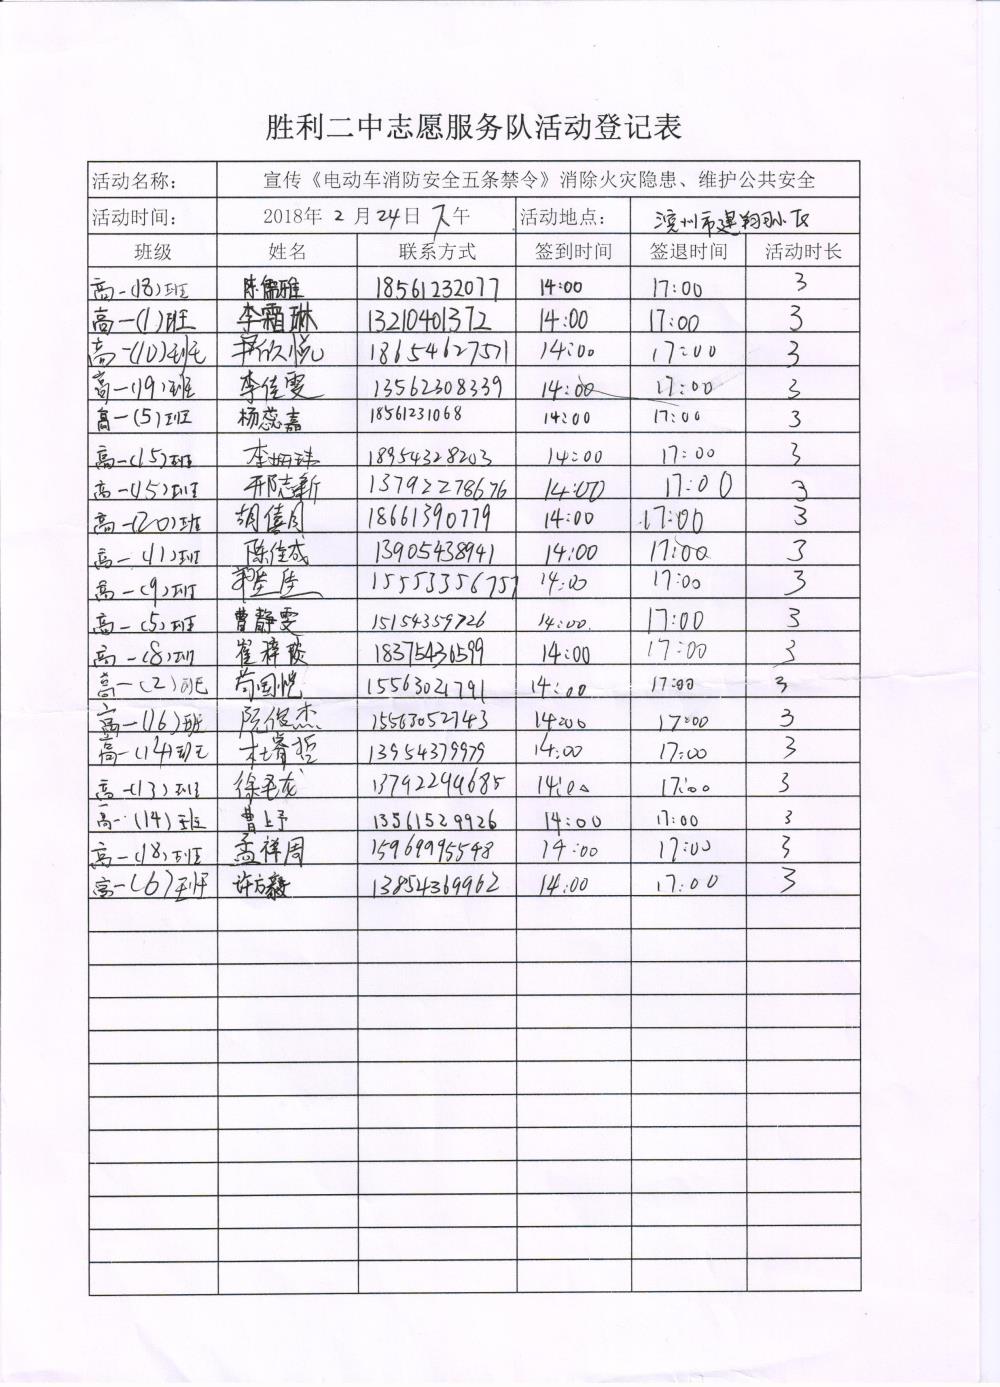 胜利二中志愿服务队活动登记表
活动名称: 宣传《电动车消防安全五条禁令》消除火灾隐患、维护公共安全
活动时间: 2018年 2 月 24 日 下午 活动地点: 滨州市建翔小区
班级 姓名 联系方式 签到时间 签退时间 活动时长
高一(18)班 陈儒雅 18561232077 14:00 17:00 3
高一(1)班 李霜琳 13210401372 14:00 17:00 3
高一(10)班 18654627571 14:00 17:00 3
高一(19)班 李佳雯 13562308339 14:00 17:00 3
高一(5)班 杨蕊嘉 18561231068 14:00 17:00 3
高一(15)班 李 18954328203 14:00 17:00 3
高一(15)班 邢志新 13792278676 14:00 17:00 3
高一(20)班 胡僖月 18661390779 14:00 17:00 3
高一(1)班 陈佳成 13905438941 14:00 17:00 3
高一(9)班 15553356757 14:00 17:00 3
高一(5)班 曹静雯 15154359726 14:00 17:00 3
高一(8)班 崔梓琰 18375436599 14:00 17:00 3
高一(2)班 苟国悦 15563021791 14:00 17:00 3
高一(16)班 阮俊杰 15563052743 14:00 17:00 3
高一(14)班 杜睿哲 13954379979 14:00 17:00 3
高一(13)班 徐 龙 13792294685 14:00 17:00 3
高一(14)班 曹上予 13561529926 14:00 17:00 3
高一(18)班 孟祥周 15969995548 14:00 17:00 3
高一(6)班 许方毅 13854369962 14:00 17:00 3